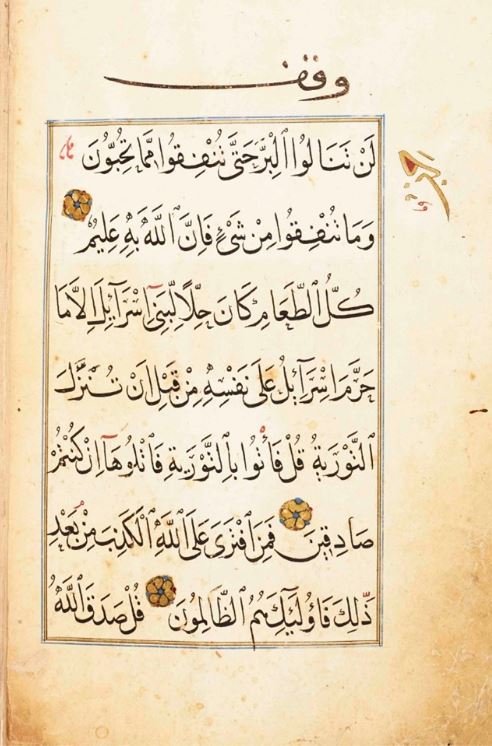 وقف
لَنْ تَنَالُوا الْبِرَّ حَتَّى تُنْفِقُوا مِمَّا تُحِبُّونَ
وَمَا تُنْفِقُوا مِنْ شَيْءٍ فَإِنَّ اللَّهَ بِهِ عَلِيمٌ
كُلُّ الطَّعَامِ كَانَ حِلًّا لِبَنِي إِسْرَآئِيلَ إِلَّا مَا
حَرَّمَ إِسْرَآئِيلُ عَلَى نَفْسِهِ مِنْ قَبْلِ أَنْ تُنَزَّلَ
التَّوْرَيةُ قُلْ فَأْتُوا بِالتَّوْرَيةِ فَاتْلُوهَا إِنْ كُنْتُمْ
صَادِقِينَ فَمَنِ افْتَرَى عَلَى اللَّهِ الْكَذِبَ مِنْ بَعْدِ
ذَلِكَ فَأُولَئِكَ هُمُ الظَّالِمُونَ قُلْ صَدَقَ اللَّهُ